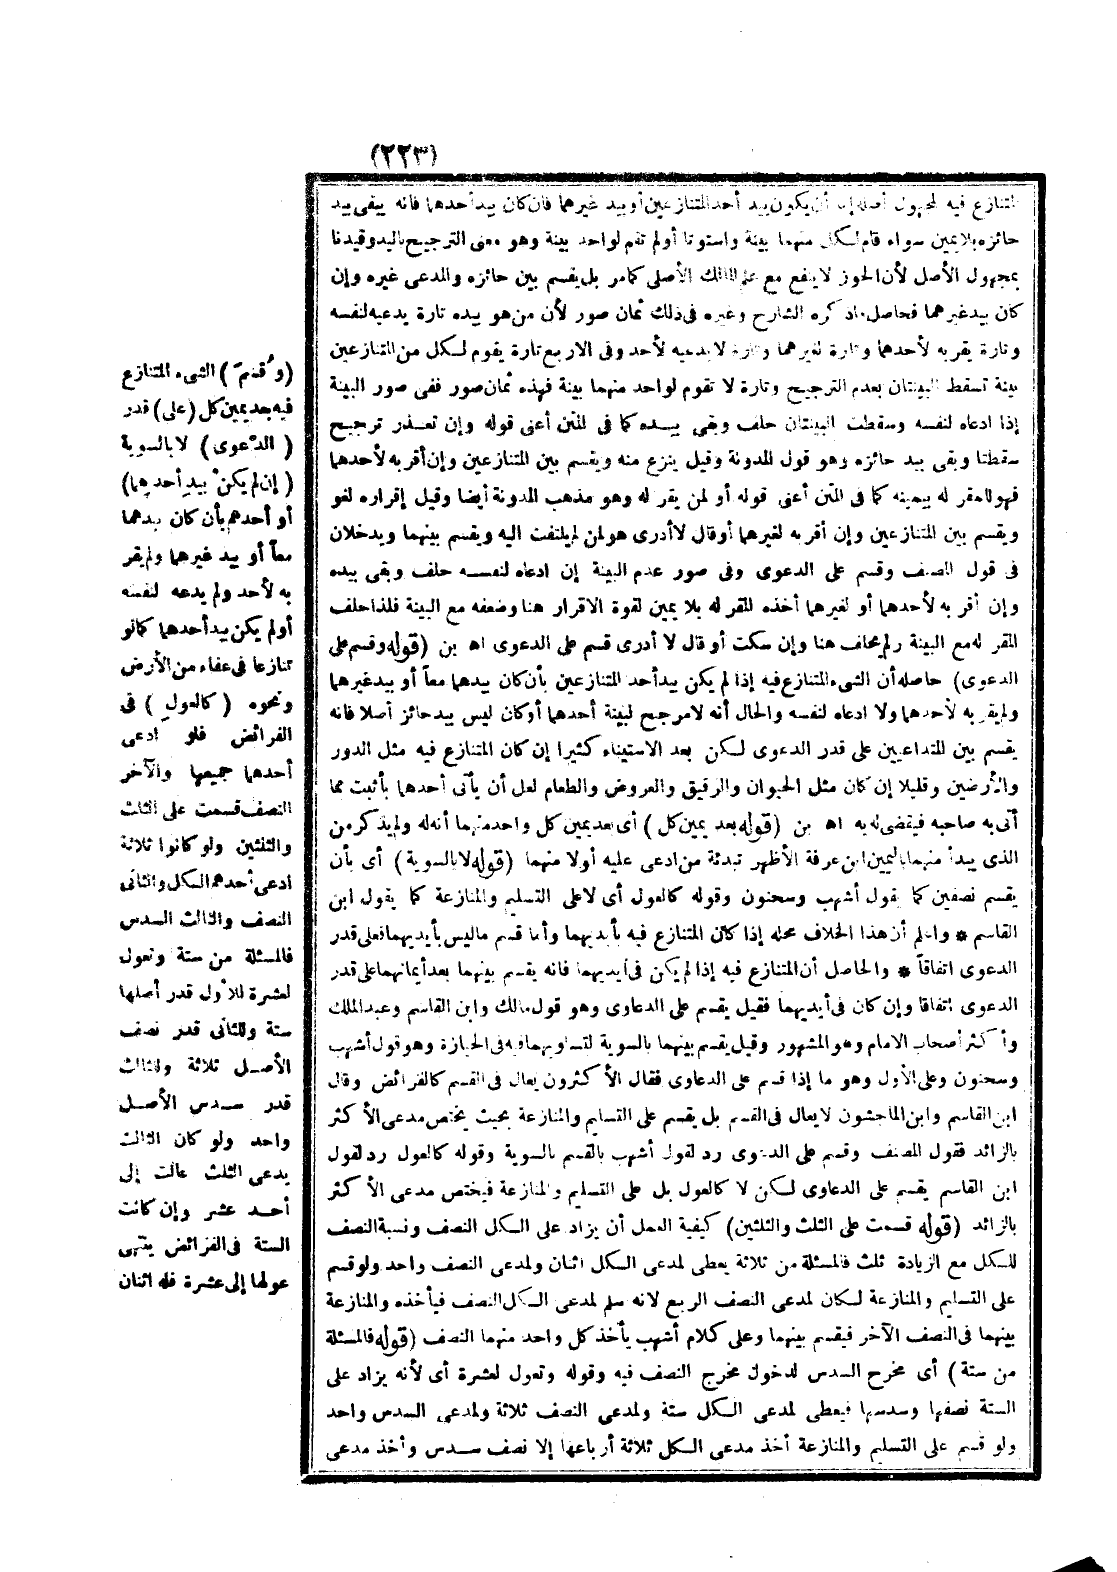 (٢٢٣)
المتنازع فيه لمجهول أصله إما أن يكون بيد أحد المتنازعين أو بيد غيرهما فان كان بيد أحدهما فانه يبقى بيد
حائزه بلا يمين سواء قام لكل منهما بينة واستوتا أو لم تقم لواحد بينة وهو معنى الترجيح باليد وقيدنا
بمجهول الأصل لأن الحوز لا ينفع مع علم المالك الأصلى كما مر بل يقسم بين حائزه والمدعى غيره وإن
كان بيد غيرهما فحاصل ماذكره الشارح وغيره فى ذلك ثمان صور لأن من هو بيده تارة يدعيه لنفسه
وتارة يقر به لأحدهما وتارة لغيرهما وتارة لا يدعيه لأحد وفى الاربع تارة يقوم لكل من المتنازعين
بينة تسقط البينتان بعدم الترجيح وتارة لا تقوم لواحد منهما بينة فهذه ثمان صور ففى صور البينة
إذا ادعاه لنفسه وسقطت البينتان حلف وبقى بيده كما فى المتن أعنى قوله وإن تعذر ترجيح
سقطتا وبقى بيد حائزه وهو قول المدونة وقيل ينزع منه ويقسم بين المتنازعين وإن أقر به لأحدهما
فهو للمقر له بيمينه كما فى المتن أعنى قوله أو لمن يقر له وهو مذهب المدونة أيضا وقيل إقراره لغو
ويقسم بين المتنازعين وإن أقر به لغيرهما أو قال لا أدرى هو لمن لم يلتفت اليه ويقسم بينهما ويدخلان
فى قول المصنف وقسم على الدعوى وفى صور عدم البينة إن ادعاه لنفسه حلف وبقى بيده
وإن أقر به لأحدهما أو لغيرهما أخذه المقر له بلا يمين لقوة الاقرار هنا وضعفه مع البينة فلذا حلف
المقر له مع البينة ولم يحلف هنا وإن سكت أو قال لا أدرى قسم على الدعوى اه بن (قوله وقسم على
الدعوى) حاصله أن الشىء المتنازع فيه إذا لم يكن بيد أحد المتنازعين بأن كان بيدهما معاً أو بيد غيرهما
ولم يقر به لأحدهما ولا ادعاه لنفسه والحال أنه لا مرجح لبينة أحدهما أو كان ليس بيد حائز أصلا فانه
يقسم بين المتداعيين على قدر الدعوى لكن بعد الاستيناء كثيرا إن كان المتنازع فيه مثل الدور
والأرضين وقليلا إن كان مثل الحيوان والرقيق والعروض والطعام لعل أن يأتى أحدهما بأثبت مما
أتى به صاحبه فيقضى له به اه بن (قوله بعد يمين كل) أى بعد يمين كل واحد منهما أنه له ولم يذكر من
الذى يبدأ منهما باليمين ابن عرفة الأظهر تبدئة من ادعى عليه أولا منهما (قوله لا بالسوية) أى بأن
يقسم نصفين كما يقول أشهب وسحنون وقوله كالعول أى لا على التسليم والمنازعة كما يقول ابن
القاسم * واعلم أن هذا الخلاف محله إذا كان المتنازع فيه بأيديهما وأما قسم ما ليس بأيديهما فعلى قدر
الدعوى اتفاقاً * والحاصل أن المتنازع فيه إذا لم يكن فى أيديهما فانه يقسم بينهما بعد أيمانهما على قدر
الدعوى اتفاقا وإن كان فى أيديهما فقيل يقسم على الدعاوى وهو قول مالك وابن القاسم وعبد الملك
وأكثر أصحاب الامام وهو المشهور وقيل يقسم بينهما بالسوية لتساويهما فيه فى الحيازة وهو قول أشهب
وسحنون وعلى الأول وهو ما إذا قسم على الدعاوى فقال الأكثرون يعال فى القسم كالفرائض وقال
ابن القاسم وابن الماجشون لا يعال فى القسم بل يقسم على التسليم والمنازعة بحيث يختص مدعى الأكثر
بالزائد فقول المصنف وقسم على الدعوى رد لقول أشهب بالقسم بالسوية وقوله كالعول رد لقول
ابن القاسم يقسم على الدعاوى لكن لا كالعول بل على التسليم والمنازعة فيختص مدعى الأكثر
بالزائد (قوله قسمت على الثلث والثلثين) كيفية العمل أن يزاد على الكل النصف ونسبة النصف
للكل مع الزيادة ثلث فالمسئلة من ثلاثة يعطى لمدعى الكل اثنان ولمدعى النصف واحد ولو قسم
على التسليم والمنازعة لكان لمدعى النصف الربع لانه سلم لمدعى الكل النصف فيأخذه والمنازعة
بينهما فى النصف الآخر فيقسم بينهما وعلى كلام أشهب يأخذ كل واحد منهما النصف (قوله فالمسئلة
من ستة) أى مخرج السدس لدخول مخرج النصف فيه وقوله وتعول لعشرة أى لأنه يزاد على
الستة نصفها وسدسها فيعطى لمدعى الكل ستة ولمدعى النصف ثلاثة ولمدعى السدس واحد
ولو قسم على التسليم والمنازعة أخذ مدعى الكل ثلاثة أرباعها إلا نصف سدس وأخذ مدعى
(وقُسم) الشىء المتنازع
فيه بعد يمين كل (على) قدر
(الدعوى) لا بالسوية
(إن لم يكن بيد أحدهما)
أو أحدهم بأن كان بيدهما
معاً أو بيد غيرهما ولم يقر
به لأحد ولم يدعه لنفسه
أو لم يكن بيد أحدهما كأن
تنازعا فى عفاء من الأرض
ونحوه (كالعول) فى
الفرائض فلو ادعى
أحدهما جميعها والآخر
النصف قسمت على الثلث
والثلثين ولو كانوا ثلاثة
ادعى أحدهم الكل والثانى
النصف والثالث السدس
فالمسئلة من ستة وتعول
لعشرة للأول قدر أصلها
ستة وللثانى قدر نصف
الأصل ثلاثة وللثالث
قدر سدس الأصل
واحد ولو كان الثالث
يدعى الثلث عالت إلى
أحد عشر وإن كانت
الستة فى الفرائض ينتهى
عولها إلى عشرة فله اثنان